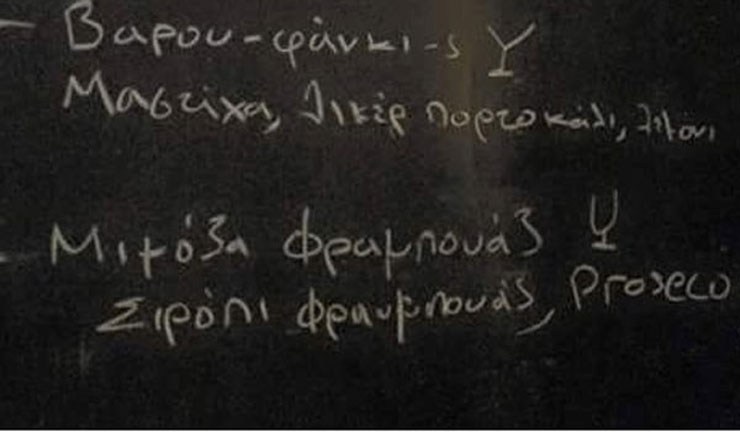 - Βαρου-φάνκι-s
Μαστίχα, λικέρ πορτοκάλι, λεμόνι
- Μιμόζα φραμπουάζ
Σιρόπι φραμπουάζ, Proseco